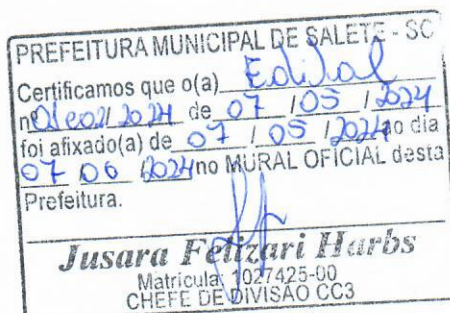 PREFEITURA MUNICIPAL DE SALETE - SC
Certificamos que o(a) Edital
nº 002/2024 de 07 / 05 / 2024
foi afixado(a) de 07 / 05 / 2024 ao dia
07 06 2024 no MURAL OFICIAL desta
Prefeitura.
Jusara Felizari Harbs
Matrícula: 1027425-00
CHEFE DE DIVISÃO CC3